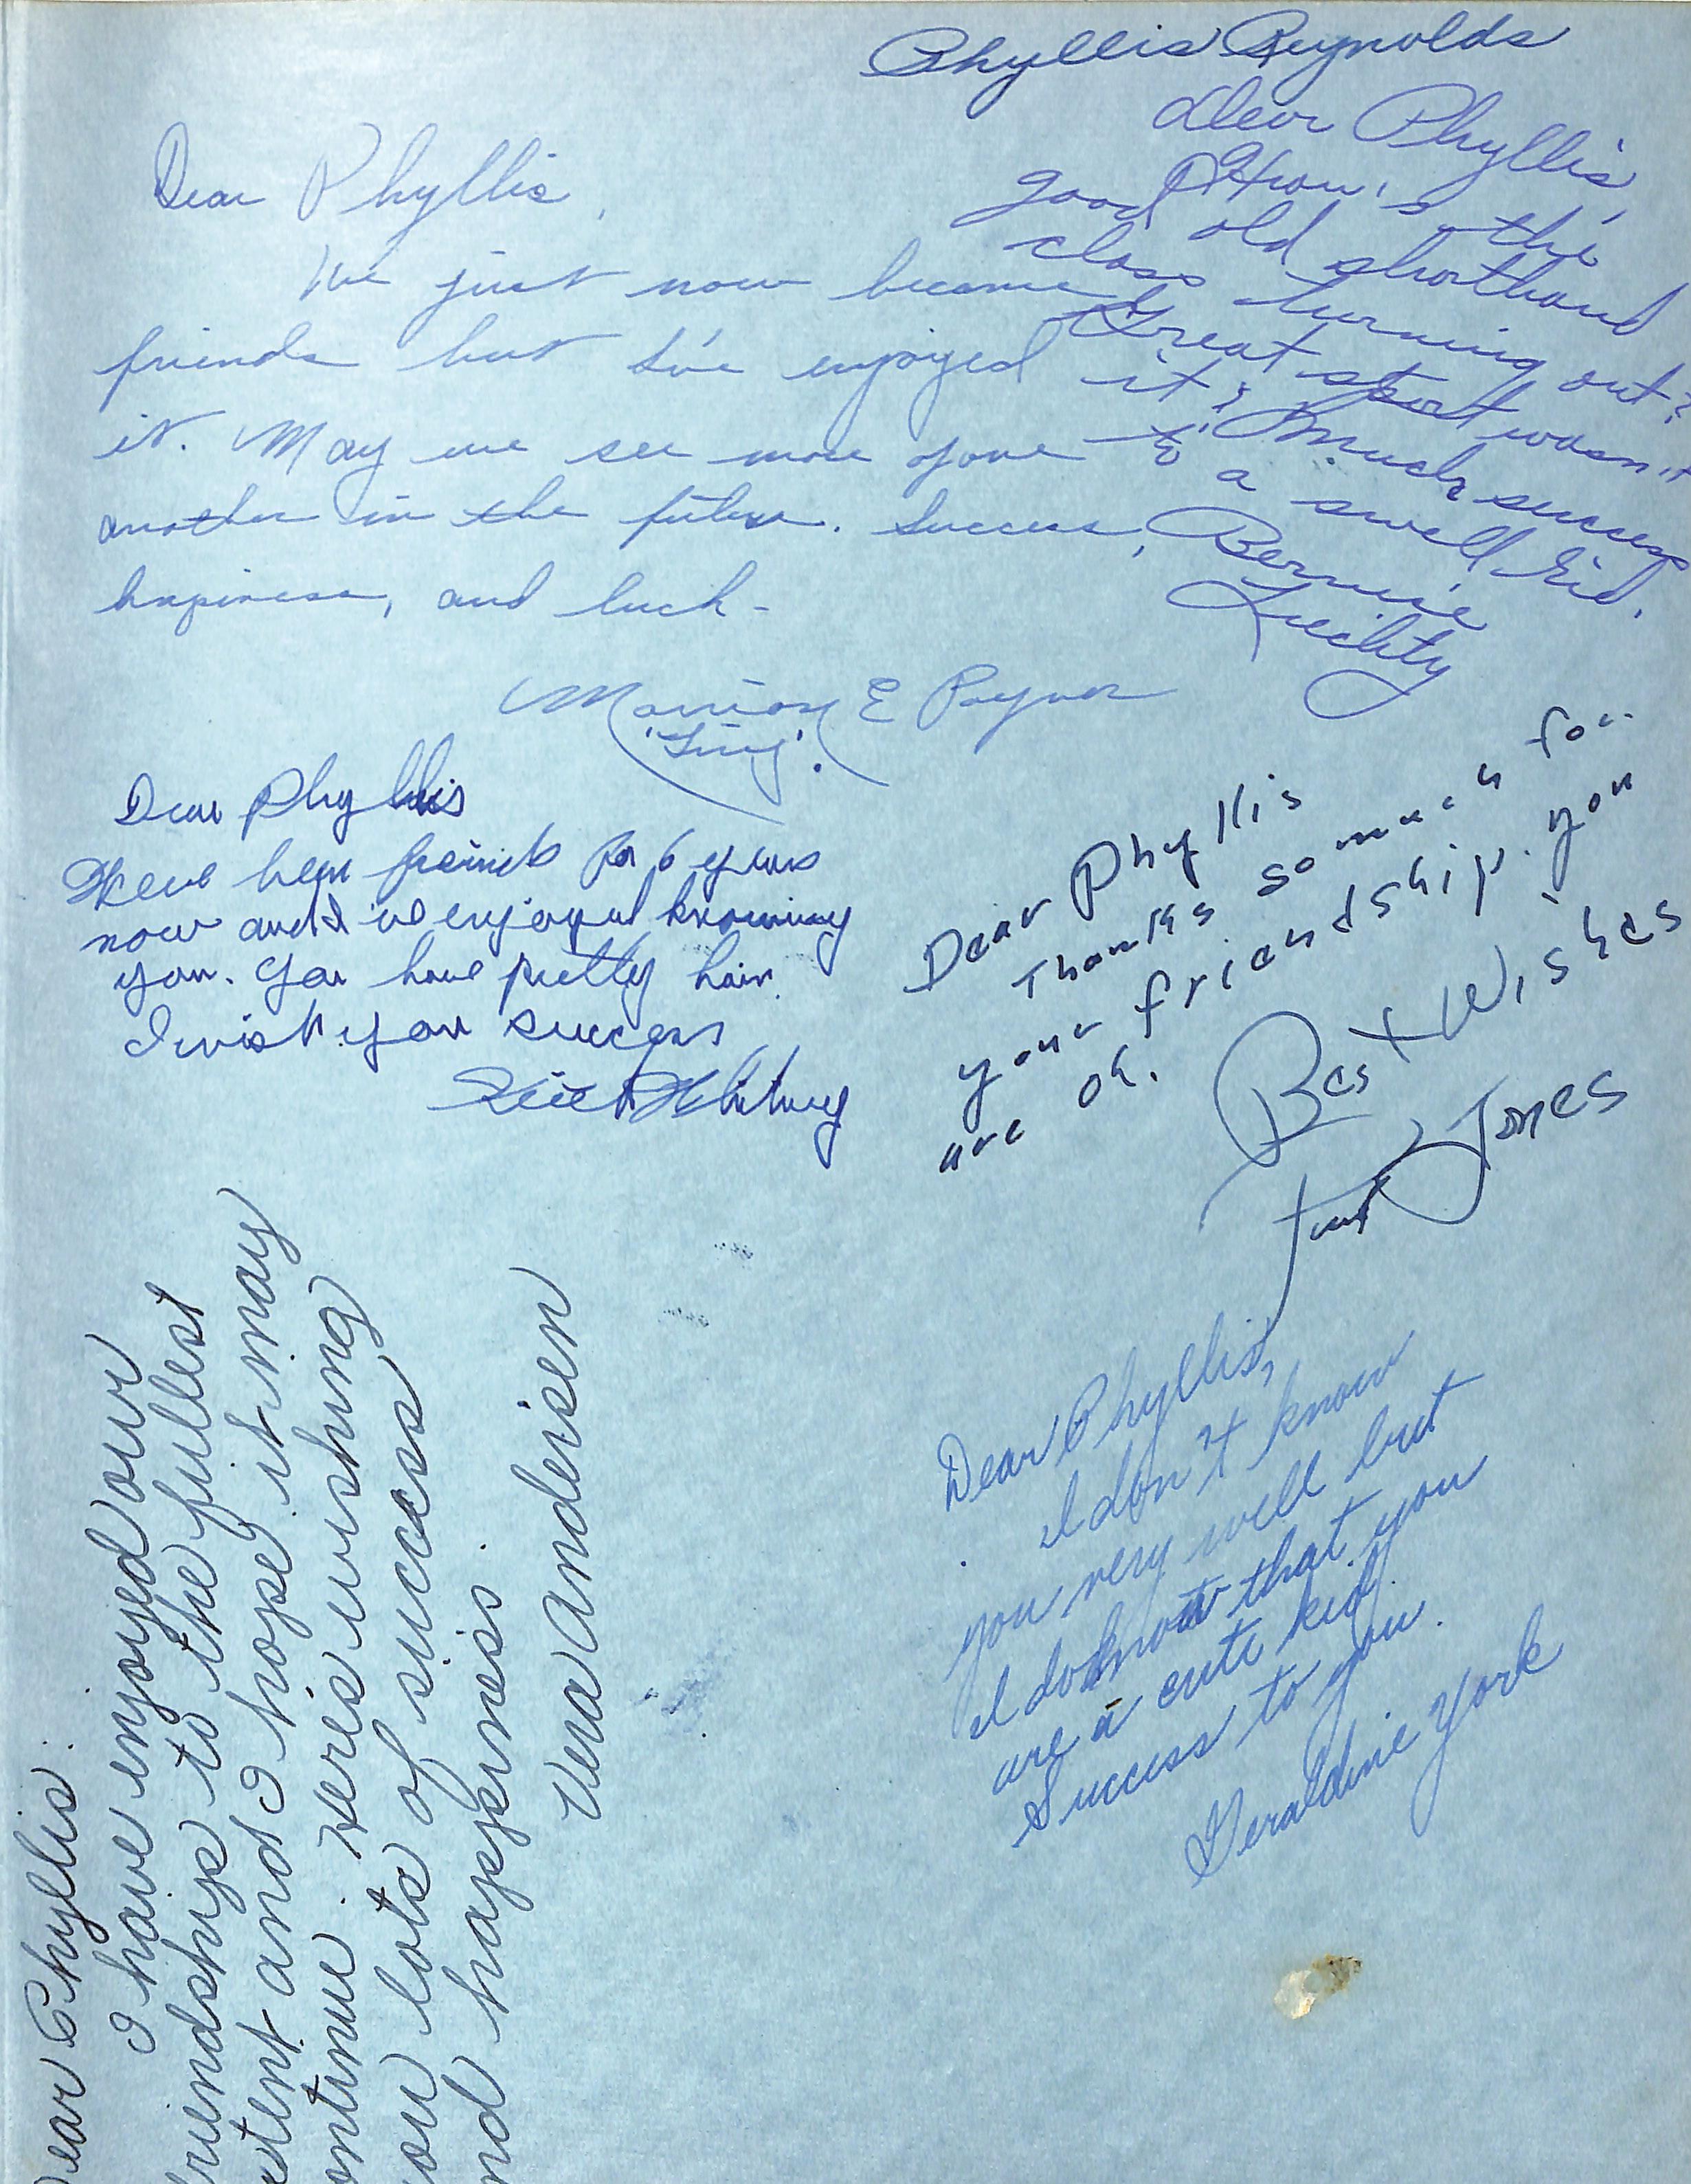 Phyllis Reynolds
Dear Phyllis,
How's the
good old shorthand
class turning out?
Great sport wasn't
it? Much success
to a swell kid.
Bernice
Dear Phyllis,
We just now became
friends but I've enjoyed
it. May we see more of one
another in the future. Success,
happiness, and luck-
E
Dear Phyllis
now and I've enjoyed knowing
you. You have pretty hair.
I wish you success
Whitney
Dear Phyllis
Thanks so much for
your friendship. you
are ok.
Best Wishes
Jones
Dear Phyllis,
I don't know
you very well but
I do know that you
are a cute kid
Success to you.
Geraldine York
ear Phyllis:
I have enjoyed our
riendship to the fullest
xtent and I hope it may
ontinue. Here's wishing
ou lots of success
nd happiness.
Vera Andersen